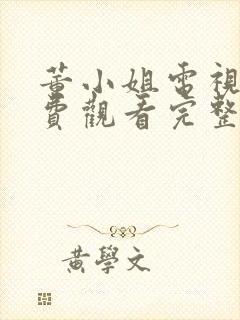 蔷小姐電視
費觀看完整
黄學文